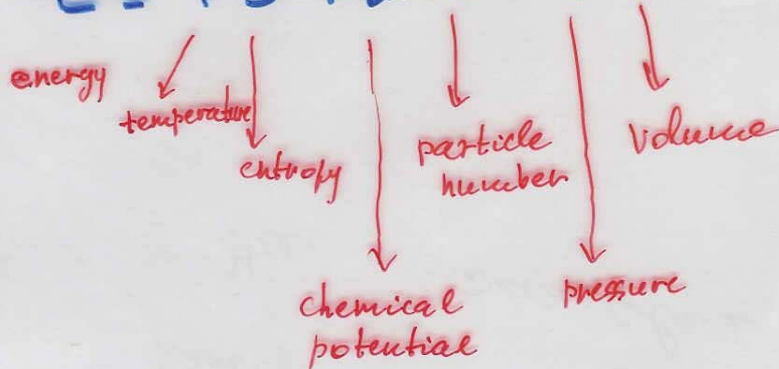 energy
temperature
entropy
particle
number
volume
chemical
potential
pressure